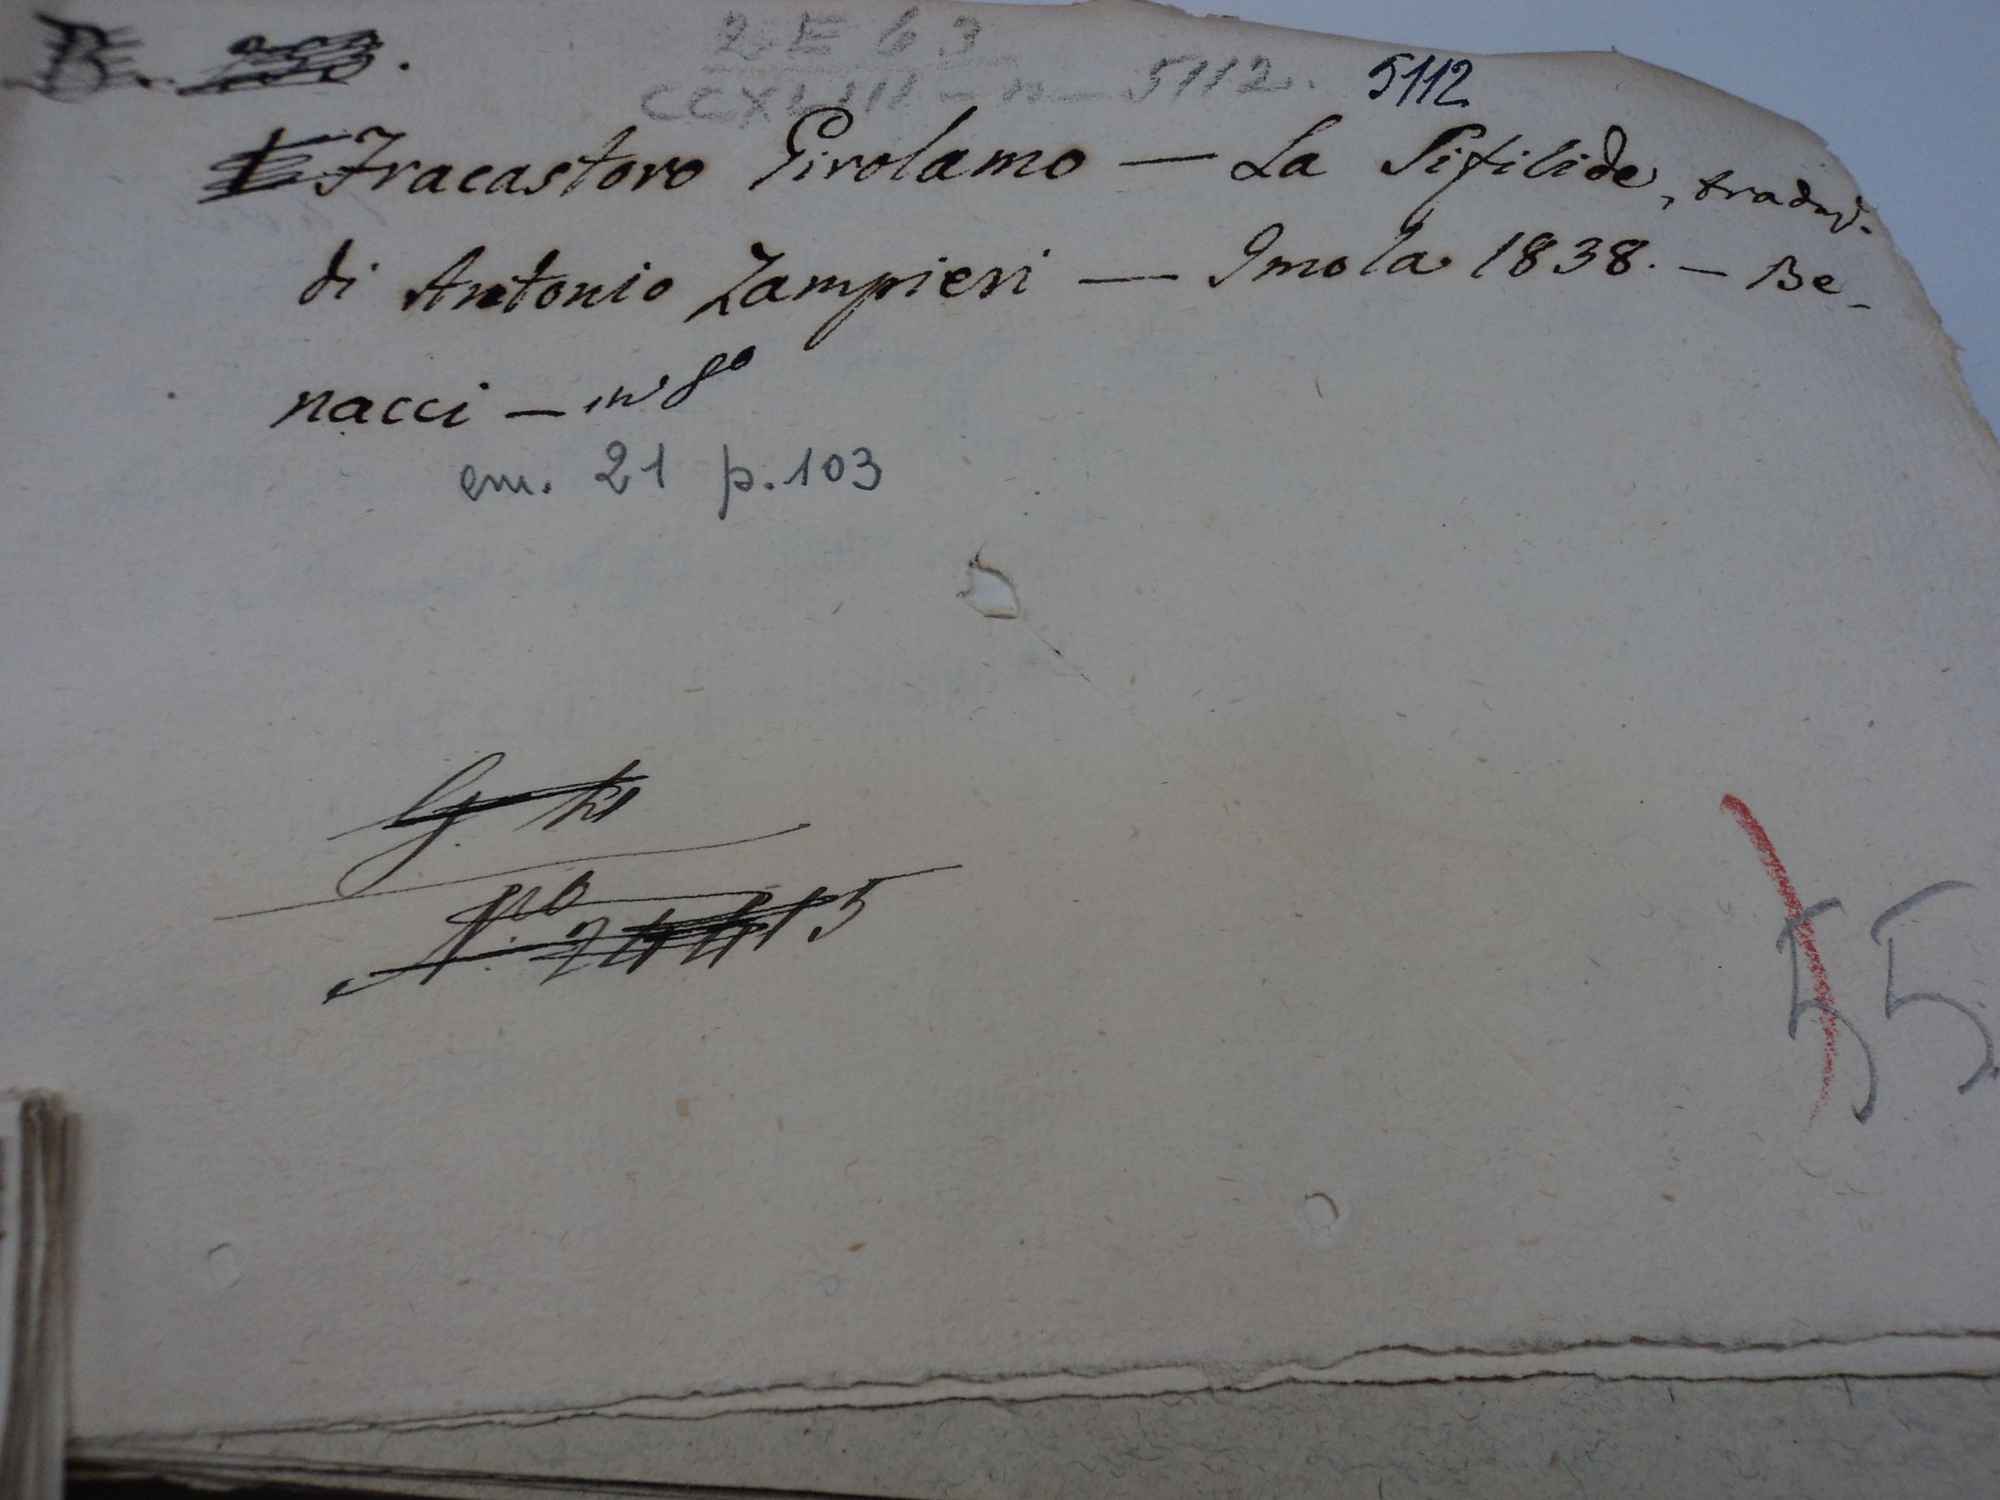 B.
2 E 63
CCXLIII - n - 5112. 5112
Fracastoro Girolamo — La Sifilide, traduz.
di Antonio Zampieri — Imola 1838. — Be-
nacci — in 8º
em. 21 p. 103
55